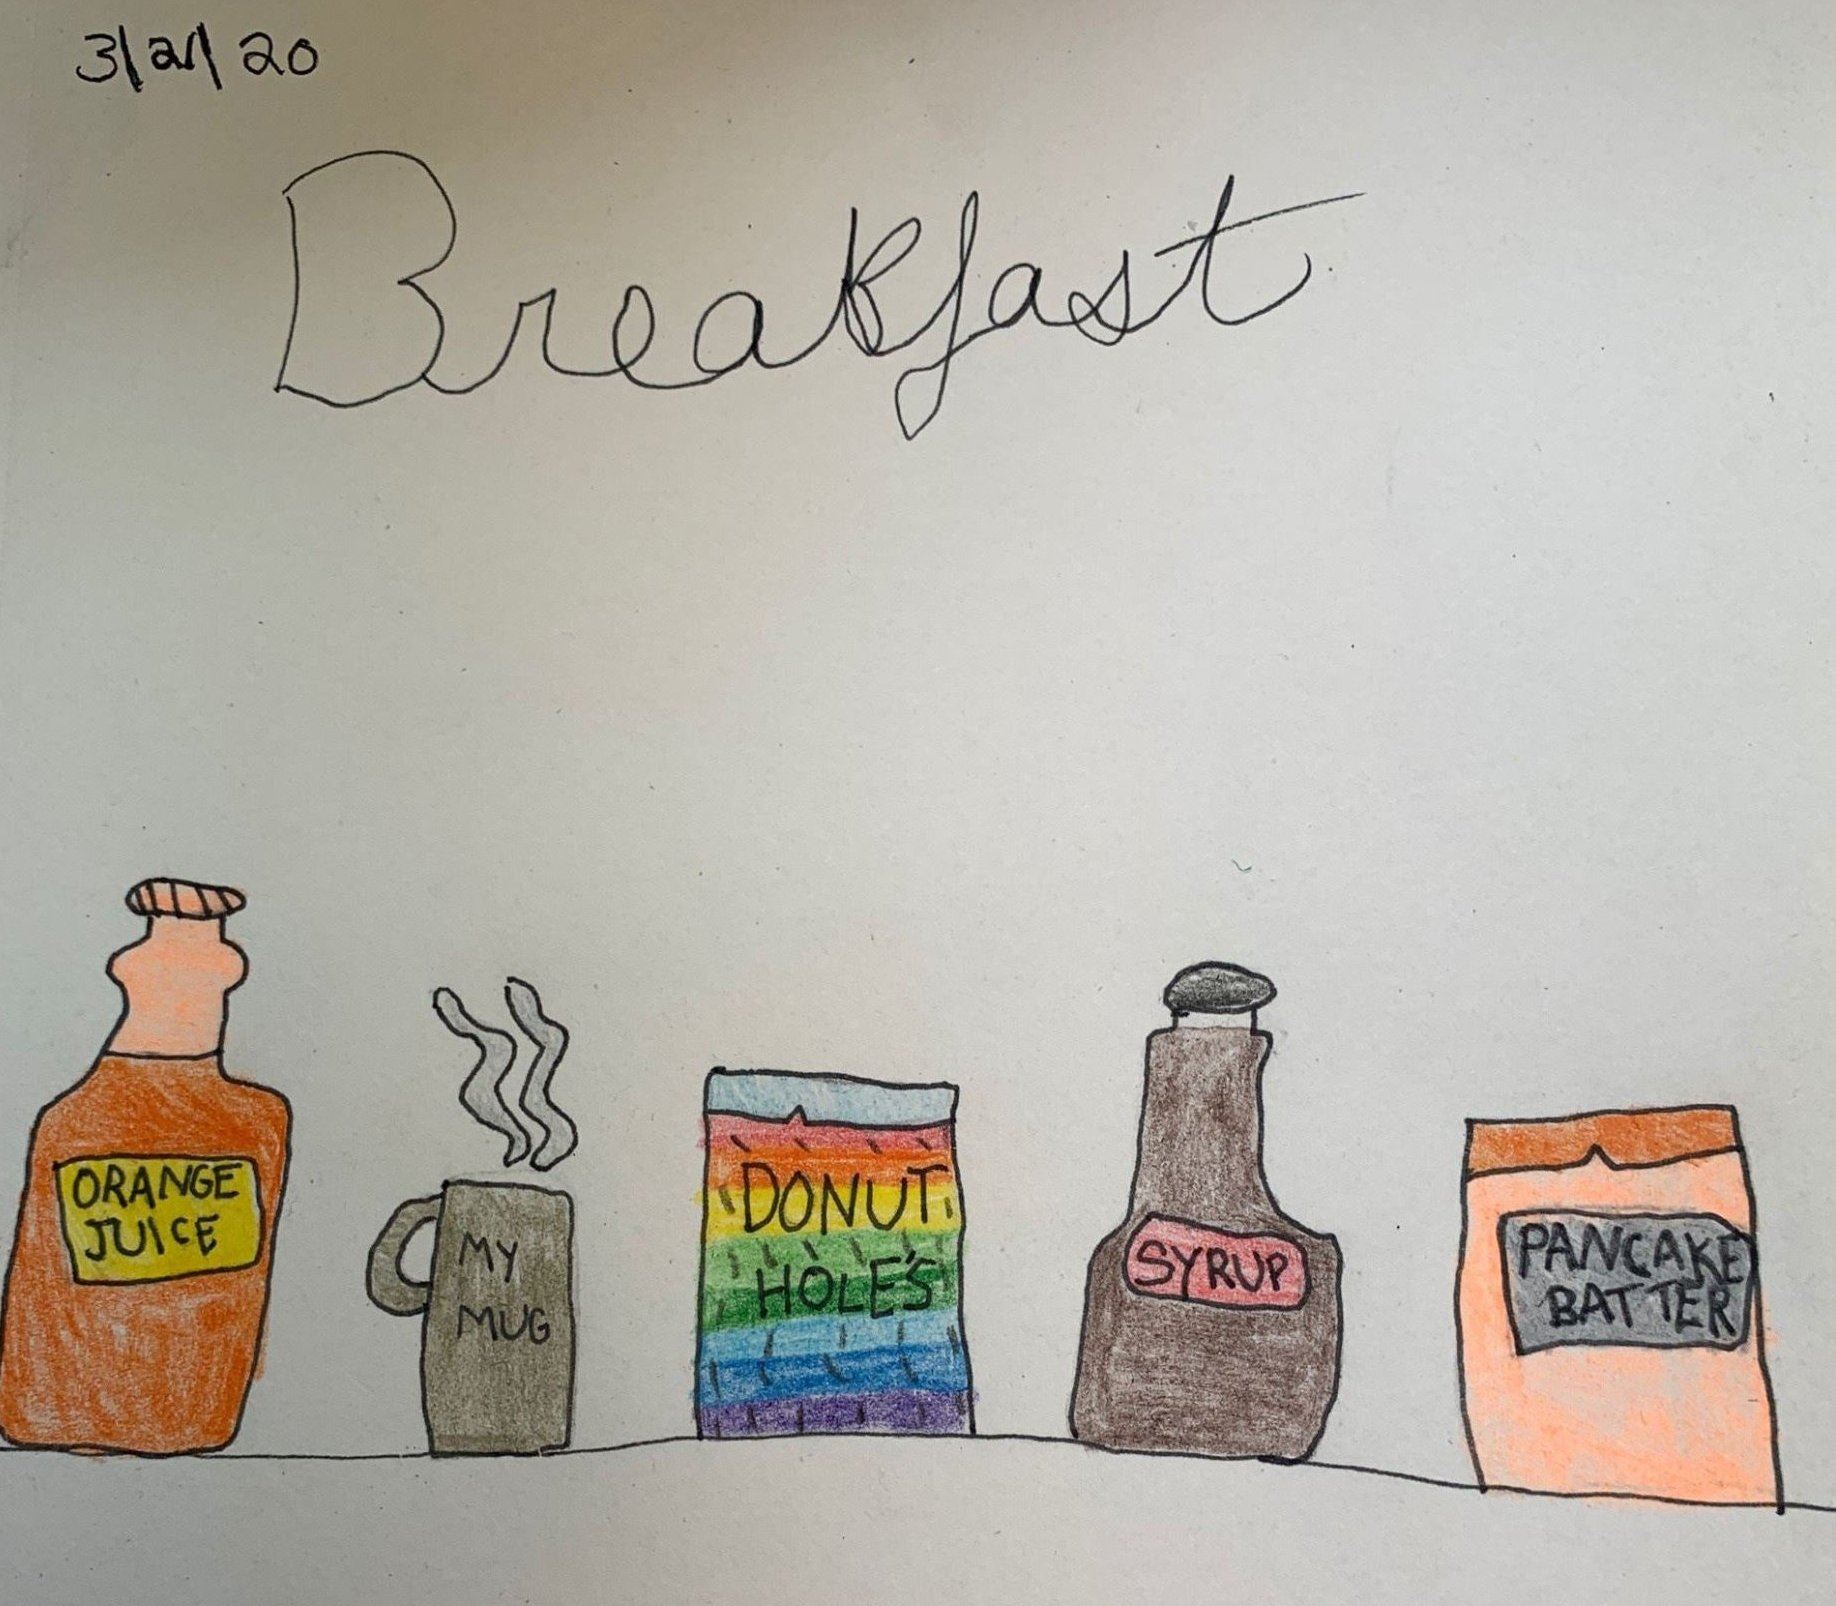 3/21/20
Breakfast
ORANGE
JUICE
MY
MUG
DONUT
HOLE'S
SYRUP
PANCAKE
BATTER